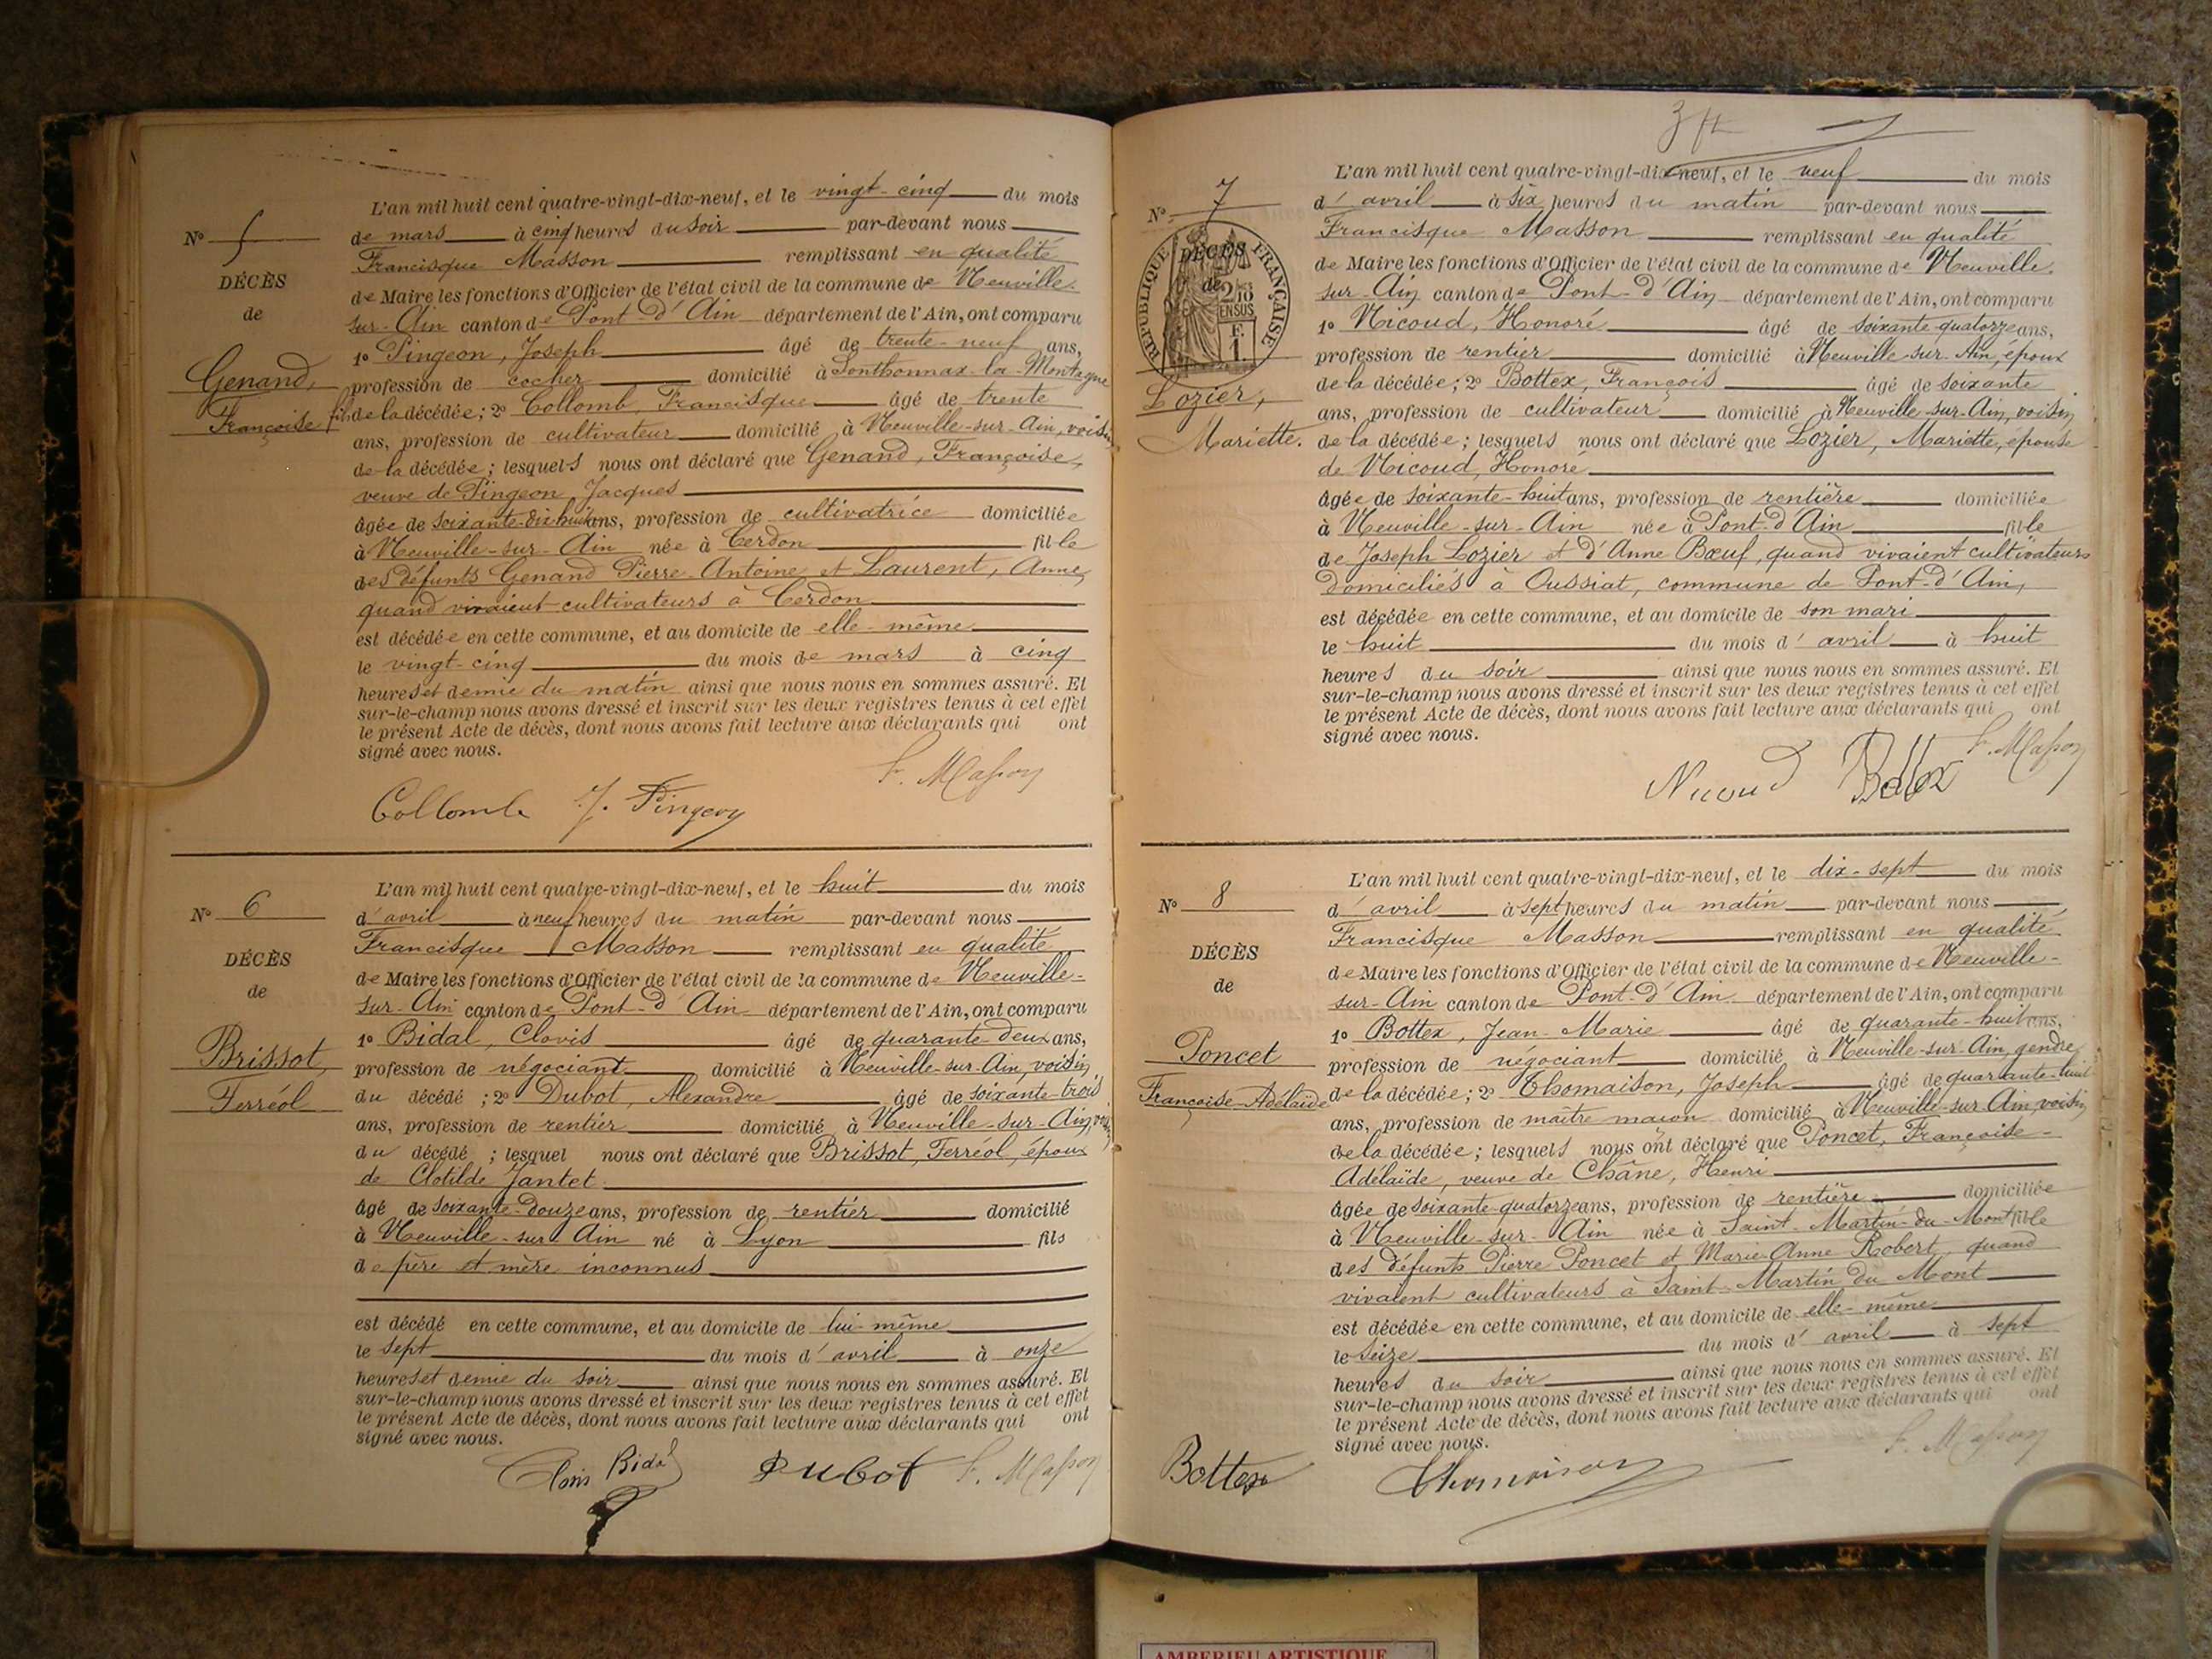 L'an mil huit cent quatre-vingt-dix-neuf, et le vingt-cinq du mois
N° 5
de mars à cinq heures du soir par-devant nous
Francisque Masson remplissant en qualité
DÉCÈS
de Maire les fonctions d'Officier de l'état civil de la commune de Neuville-
de
sur-Ain canton de Pont-d'Ain département de l'Ain, ont comparu
1° Pingeon, Joseph âgé de trente-neuf ans,
Genand,
profession de cocher domicilié à Sonthonnax-la-Montagne
Françoise
fils de la décédée; 2° Collomb, Francisque âgé de trente
ans, profession de cultivateur domicilié à Neuville-sur-Ain, voisin
de la décédée; lesquels nous ont déclaré que Genand, Françoise,
veuve de Pingeon, Jacques
âgée de soixante-dix-huit ans, profession de cultivatrice domiciliée
à Neuville-sur-Ain née à Cerdon fille
des défunts Genand Pierre-Antoine et Laurent, Anne,
quand vivaient cultivateurs à Cerdon
est décédée en cette commune, et au domicile de elle-même
le vingt-cinq du mois de mars à cinq
heures et demie du matin ainsi que nous nous en sommes assuré. Et
sur-le-champ nous avons dressé et inscrit sur les deux registres tenus à cet effet
le présent Acte de décès, dont nous avons fait lecture aux déclarants qui ont
signé avec nous.
F. Masson
Collomb J. Pingeon
L'an mil huit cent quatre-vingt-dix-neuf, et le huit du mois
N° 6
d'avril à neuf heures du matin par-devant nous
Francisque Masson remplissant en qualité
DÉCÈS
de Maire les fonctions d'Officier de l'état civil de la commune de Neuville-
de
sur-Ain canton de Pont-d'Ain département de l'Ain, ont comparu
1° Bidal, Clovis âgé de quarante-deux ans,
Brissot,
profession de négociant domicilié à Neuville-sur-Ain, voisin
Ferréol
du décédé ; 2° Dubot, Alexandre âgé de soixante-trois
ans, profession de rentier domicilié à Neuville-sur-Ain, voisin
du décédé ; lesquel nous ont déclaré que Brissot, Ferréol, époux
de Clotilde Jantet
âgé de soixante-douze ans, profession de rentier domicilié
à Neuville-sur-Ain né à Lyon fils
de père et mère inconnus
est décédé en cette commune, et au domicile de lui-même
le sept du mois d'avril à onze
heures et demie du soir ainsi que nous nous en sommes assuré. Et
sur-le-champ nous avons dressé et inscrit sur les deux registres tenus à cet effet
le présent Acte de décès, dont nous avons fait lecture aux déclarants qui ont
signé avec nous.
Clovis Bidal Dubot F. Masson
L'an mil huit cent quatre-vingt-dix-neuf, et le neuf du mois
N° 7
d'avril à six heures du matin par-devant nous
Francisque Masson remplissant en qualité
DÉCÈS
de
RÉPUBLIQUE FRANÇAISE
2/10 EN SUS
F. 1.
de Maire les fonctions d'Officier de l'état civil de la commune de Neuville-
sur-Ain canton de Pont-d'Ain département de l'Ain, ont comparu
1° Nicoud, Honoré âgé de soixante-quatorze ans,
profession de rentier domicilié à Neuville-sur-Ain, époux
Lozier,
de la décédée; 2° Bottex, François âgé de soixante
ans, profession de cultivateur domicilié à Neuville-sur-Ain, voisin
Mariette.
de la décédée; lesquels nous ont déclaré que Lozier, Mariette, épouse
de Nicoud, Honoré
âgée de soixante-huit ans, profession de rentière domiciliée
à Neuville-sur-Ain née à Pont-d'Ain fille
de Joseph Lozier et d'Anne Bœuf, quand vivaient cultivateurs
domiciliés à Oussiat, commune de Pont-d'Ain,
est décédée en cette commune, et au domicile de son mari
le huit du mois d'avril à huit
heures du soir ainsi que nous nous en sommes assuré. Et
sur-le-champ nous avons dressé et inscrit sur les deux registres tenus à cet effet
le présent Acte de décès, dont nous avons fait lecture aux déclarants qui ont
signé avec nous.
Nicoud Bottex F. Masson
L'an mil huit cent quatre-vingt-dix-neuf, et le dix-sept du mois
N° 8
d'avril à sept heures du matin par-devant nous
Francisque Masson remplissant en qualité
DÉCÈS
de Maire les fonctions d'Officier de l'état civil de la commune de Neuville-
de
sur-Ain canton de Pont-d'Ain département de l'Ain, ont comparu
1° Bottex, Jean-Marie âgé de quarante-huit ans,
Poncet
profession de négociant domicilié à Neuville-sur-Ain, gendre
Françoise-Adélaïde
de la décédée; 2° Thomaison, Joseph âgé de quarante-huit
ans, profession de maître maçon domicilié à Neuville-sur-Ain, voisin
de la décédée; lesquels nous ont déclaré que Poncet, Françoise-
Adélaïde, veuve de Châne, Henri
âgée de soixante-quatorze ans, profession de rentière domiciliée
à Neuville-sur-Ain née à Saint-Martin-du-Mont fille
des défunts Pierre Poncet et Marie-Anne Robert, quand
vivaient cultivateurs à Saint-Martin du Mont
est décédée en cette commune, et au domicile de elle-même
le seize du mois d'avril à sept
heures du soir ainsi que nous nous en sommes assuré. Et
sur-le-champ nous avons dressé et inscrit sur les deux registres tenus à cet effet
le présent Acte de décès, dont nous avons fait lecture aux déclarants qui ont
signé avec nous.
Bottex Thomaison F. Masson
AMBERIEU ARTISTIQUE